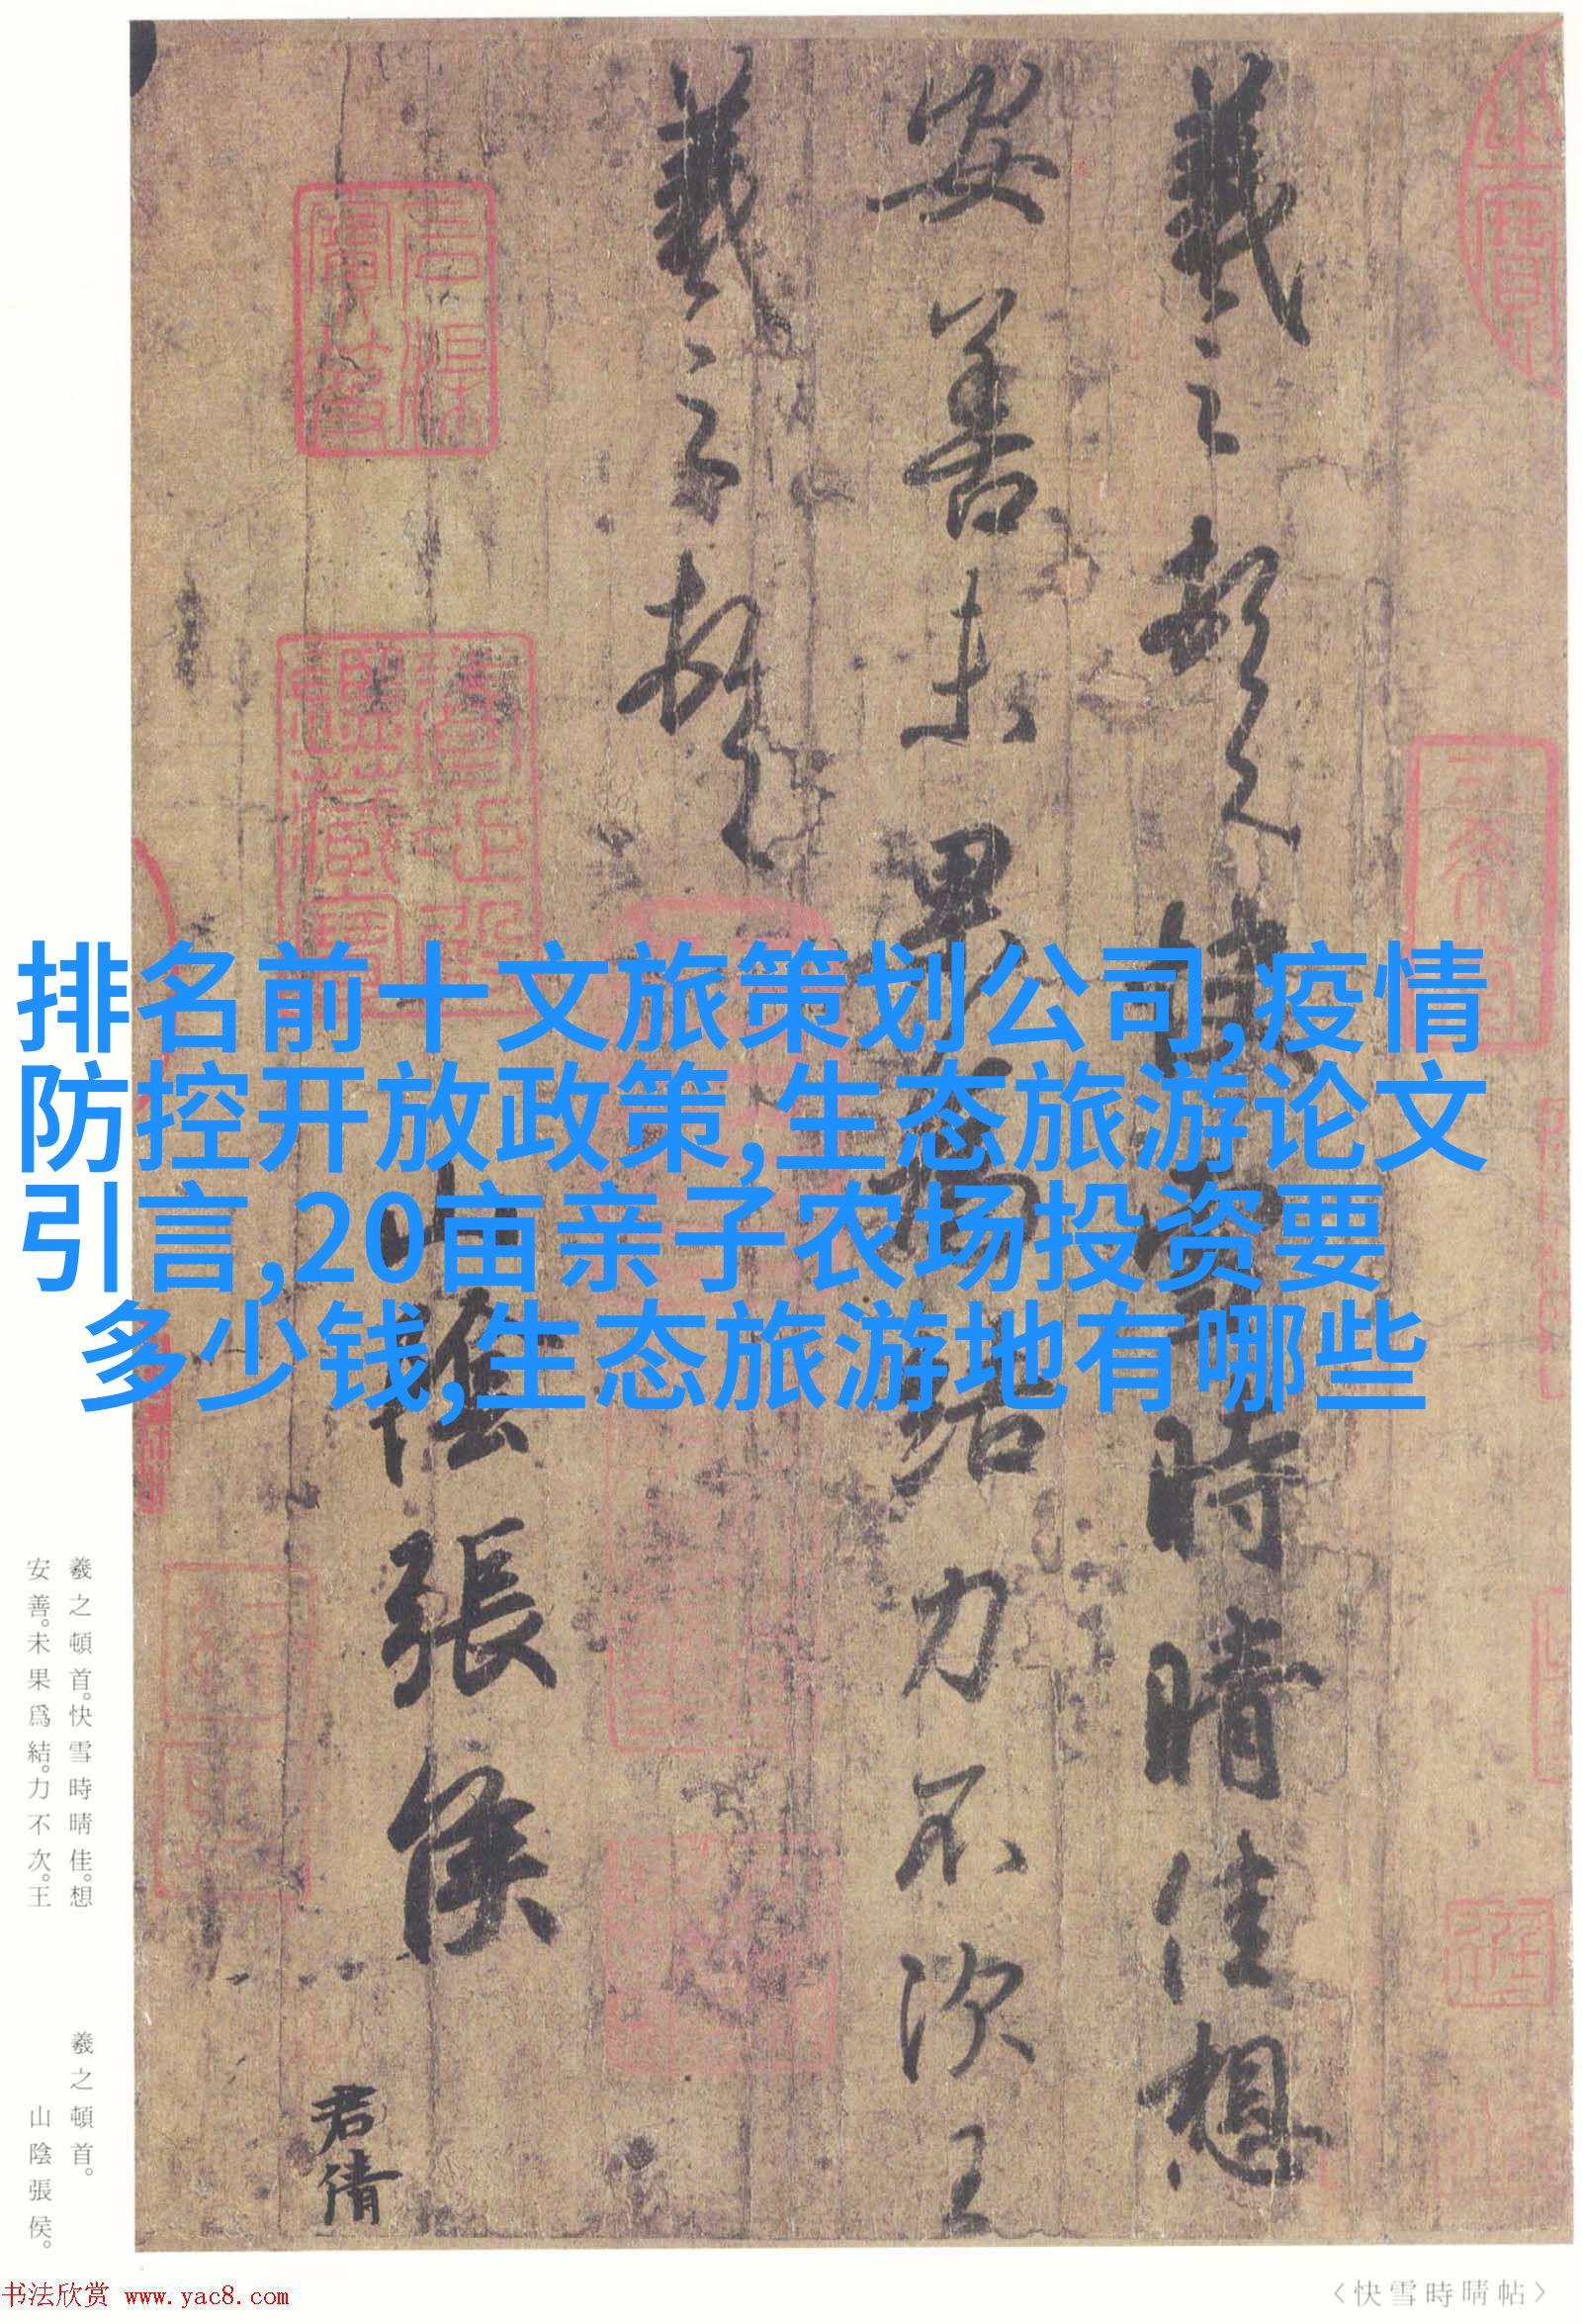 排名前十文旅策划公司,疫情
防控开放政策,生态旅游论文
引言,20亩亲子农场投资要
多少钱,生态旅游地有哪些
羲之頓首快雪時晴佳想
安善未果為結力不次王
羲之頓首
山陰張侯
君倩
羲之頓首。快雪時晴佳。想
安善。未果爲結。力不次。王
羲之頓首。
山陰張侯。
〈快雪時晴帖〉
书法欣赏 www.yac8.com